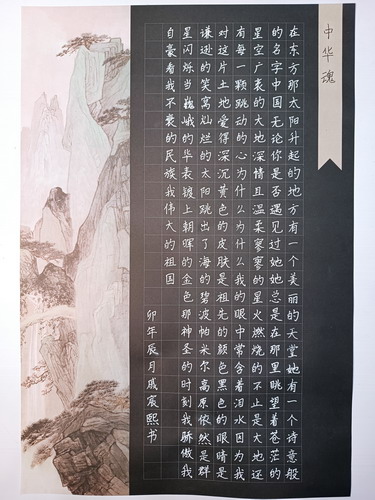 中华魂
在东方那太阳升起的地方有一个美丽的天堂她有一个诗意般
的名字中国无论你是否遇见过她她总是在那里眺望着苍茫的
星空广袤的大地深情且温柔寥寥的星火燃烧的不止是大地还
有每一颗跳动的心为什么为什么我的眼中常含着泪水因为我
对这片土地爱得深沉黄色的皮肤是祖先的颜色黑色的眼睛是
谦逊的笑窝灿烂的太阳跳出了海的碧波帕米尔高原依然是群
星闪烁当巍峨的华表镀上朝晖的金色那神圣的时刻我骄傲我
自豪看我不衰的民族我伟大的祖国
卯年辰月戚宸熙书